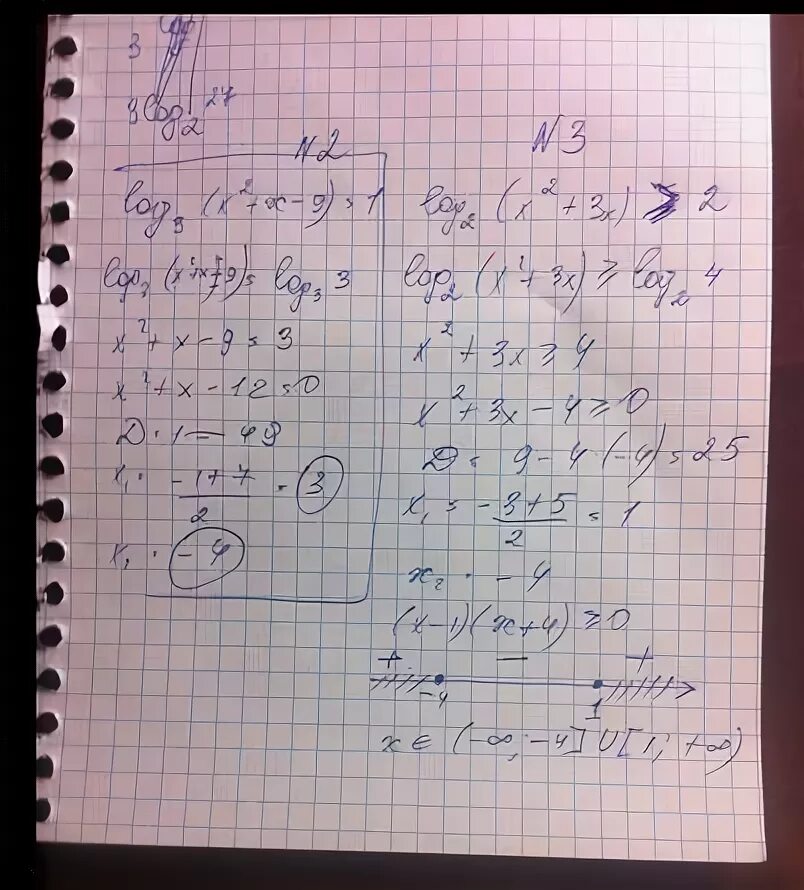 3
3 log₂ 27
N2
log₃ (x² + x - 9) = 1
log₃ (x² + x - 9) = log₃ 3
x² + x - 9 = 3
x² + x - 12 = 0
D = 1 - 49
x₁ = (-1 + 7)/2 = 3
x₁ = -4
N3
log₂ (x² + 3x) ≥ 2
log₂ (x² + 3x) ≥ log₂ 4
x² + 3x ≥ 4
x² + 3x - 4 ≥ 0
D = 9 - 4 (-4) = 25
x₁ = -3 + 5/2 = 1
x₂ = -4
(x-1)(x+4) ≥ 0
+ - +
-4 1
x ∈ (-∞; -4] ∪ [1; +∞)